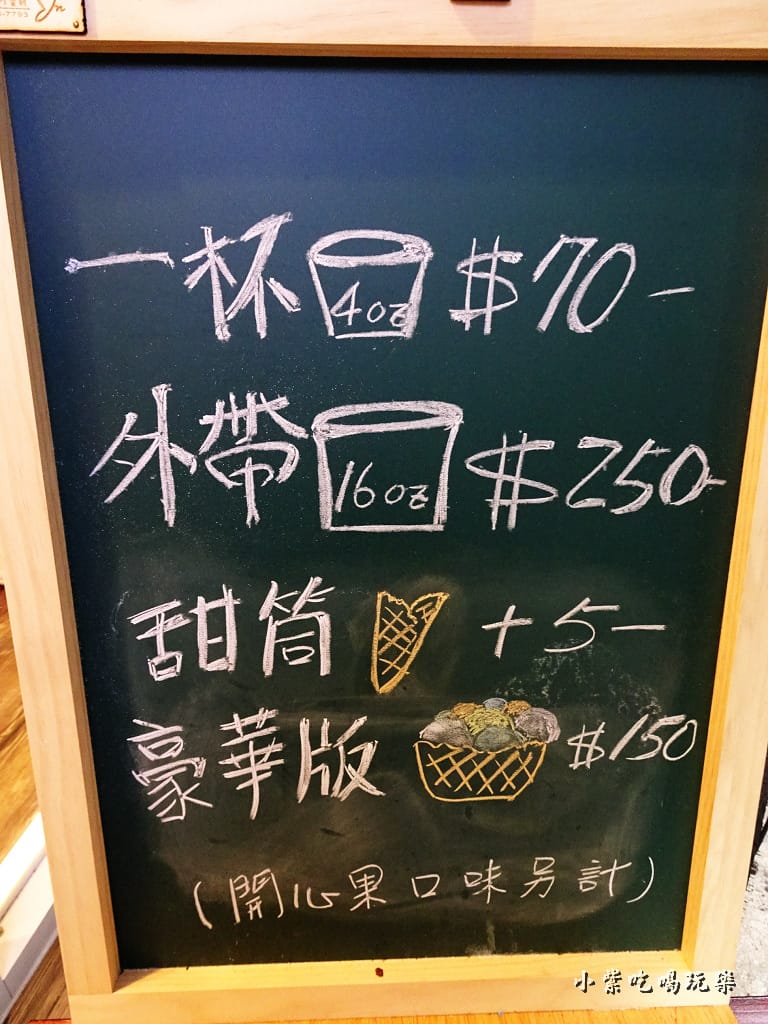 一杯 4oz $70-
外帶 16oz $250-
甜筒 +5-
豪華版 $150
(開心果口味另計)
小紫吃喝玩樂